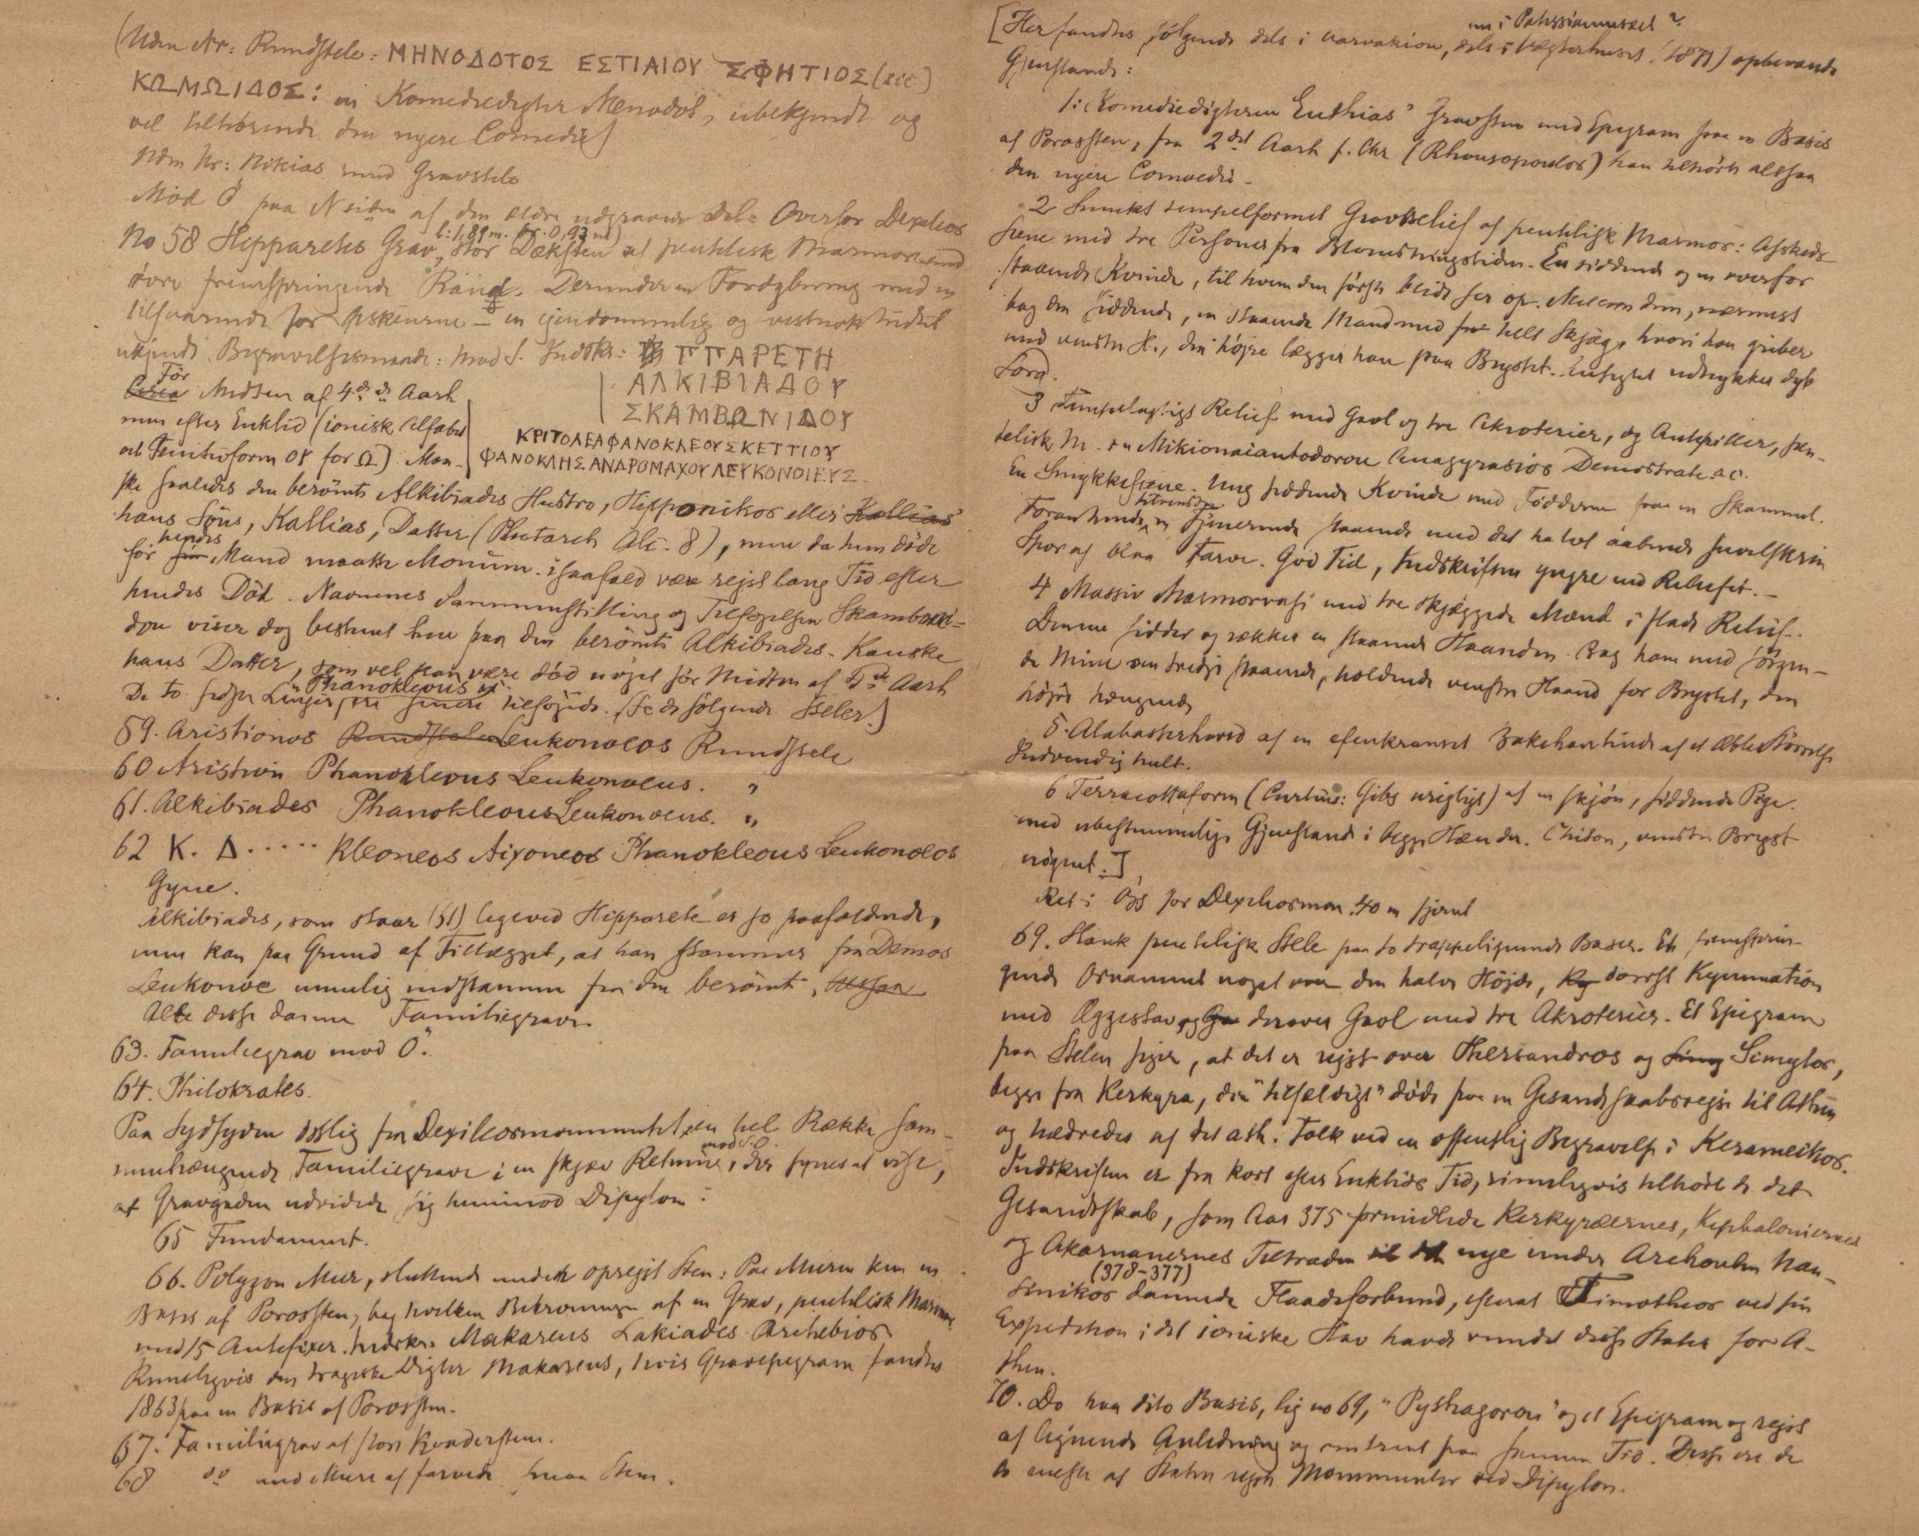 (Uden Nr: Rundstele: ΜΗΝΟΔΟΤΟΣ ΕΣΤΙΑΙΟΥ ΣΦΗΤΙΟΣ (sic)
ΚΩΜΩΙΔΟΣ: en Komediedigter Menodot, ubekjendt og
vel tilhørende den nyere Comedie)
Uden Nr: Nikias med Gravstele
Mod Ö paa N siden af den ældre udgravede Del = Overfor Dexileos
No 58 Hipparetes Grav, stor Dæksten af pentelisk Marmor med
l: 1,89 m. br. 0,93 m)
övre fremspringende Rand. Derunder en Fordybning med en
tilsvarende for Askeurne – en ejendommelig og vistnok hidtil
ukjendt Begravelsesmaade: mod S. Indskr: ΙΠΠΑΡΕΤΗ
ΑΛΚΙΒΙΑΔΟΥ
ΣΚΑΜΒΩΝΙΔΟΥ
ΚΡΙΤΟΛΕΑ ΦΑΝΟΚΛΕΟΥΣ ΚΕΤΤΙΟΥ
ΦΑΝΟΚΛΗΣ ΑΝΔΡΟΜΑΧΟΥ ΛΕΥΚΟΝΟΙΕΥΣ
Före Midten af 4de Aarh
men efter Euklid (ionisk Alfabet
og Genitivform ΟΥ for Ω). Man-
ske saaledes den berømte Alkibiades Hustro, Hipponikos eller Kallias
hans Søns, Kallias, Datter (Plutarch Alc. 8), men da hun døde
før hendes Mand maatte Monum. i saafald være rejst lang Tid efter
hendes Död. Navnenes Sammenstilling og Tilføjelsen Skamboni-
dou viser dog bestemt hen paa den berømte Alkibiades. Kanske
hans Datter, som vel kan være död noget før Midten af 4de Aarh
De to sidste Linjer ere senere tilføjede. (se de følgende Steler.)
Phanokleous
59. Aristionos Rundstele Leukonoeos Rundstele
60 Aristion Phanokleous Leukonoeus. "
61. Alkibiades Phanokleous Leukonoeus. "
62 Κ. Δ..... Kleoneos Aixoneos Phanokleous Leukonoeos
Gyne.
Alkibiades, som staar (61) ligeved Hipparete er jo paafaldende,
men kan paa Grund af Tillægget, at han stammer fra Demos
Leukonoe umulig nedstamme fra den berømte.
Alle disse danne Familiegrave.
63. Familiegrav mod Ö.
64. Philokrates.
Paa Sydsyden østlig fra Dexileosmonumentet en hel Række sam-
menhængende Familiegrave i en skjæv Retning mod S.O., der synes at vise,
at Gravgaden udvidede sig henimod Dipylon:
65 Fundament.
66. Polygon Mur, sluttende med et oprejst Sten: Paa Muren kun en
Basis af Porossten, bag hvilken Bekroningen af en Grav, pentelisk Marmor,
med 15 Antefixer. Indskr: Makareus Lakiades Archebios.
Rimeligvis den tragiske Digter Makareus, hvis Gravepigram fandtes
1863 paa en Basis af Porossten.
67. Familiegrav af store Kvadersten.
68 do med Mure af farvede smaa Sten.
[Her fandtes følgende dels i Varvakion, dels i Vægterhuset (1871) opbevarede
nu i Patissiamuseet?
Gjenstande:
1: (Komediedigteren Euthias' Gravsten med Epigram paa en Basis
af Porossten, fra 2det Aarh f. Chr (Rhousopoulos) han tilhørte altsaa
den nyere Comoedie.
2 Smukt tempelformet Gravrelief af pentelisk Marmor: Afskeds-
scene med tre Personer fra Blomstringstiden. En siddende og en overfor
staaende Kvinde, til hvem den første blidt ser op. Mellem dem, nærmest
bag den siddende, en staaende Mand med helt Skjæg, hvori han griber
med venstre H., den højre lægger han paa Brystet. Ansigtet udtrykker dyb
Sorg.
3 Tempelagtigt Relief med Gavl og tre Akroterier, og Antepiller, pen-
telisk M. Mikionaiantodorou Anagyrasios Demostrate ac.
En Smykkescene. Ung siddende Kvinde med Fødderne paa en Skammel.
Foran hende tilvenstre en Tjenerinde staaende med det halvt aabnede Juvelskrin
Spor af blaa Farve. God Tid, Indskriften yngre end Relieffet.
4 Massiv Marmorvase med tre skjæggede Mænd i fladt Relief.
Denne sidder og rækker en staaende Haanden. Bag ham med sørgen-
de Mine en tredje staaende, holdende venstre Haand for Brystet, den
højre hængende
5. Alabasterhoved af en efeukranset Bakchantinde af et Æbles Størrelse
Indvendig hult.
6 Terracottaform (Curtius: Gibs urigtigt) af en skjøn, siddende Pige.
med ubestemmelige Gjenstande i begge Hænder. Chiton, venstre Bryst
nøgent.]
Ret i Ö for Dexileosmon. 40 m fjernt
69. Slank pentelisk Stele paa to trappelignende Baser. Et fremsprin-
gende Ornament noget over den halve Højde, dorisk Kymmation
med Æggestav, derover Gavl med tre Akroterier. Et Epigram
paa Stelen siger, at det er rejst over Thersandros og Simylos,
begge fra Kerkyra, der "tilfældigt" døde paa en Gesandtskabsrejse til Athen
og hædredes af det ath. Folk ved en offentlig Begravelse i Kerameikos.
Indskriften er fra kort efter Euklids Tid, rimeligvis tilhørte de det
Gesandtskab, som Aar 375 formidlede Kerkyræernes, Kephaloniernes
og Akarnanernes Tiltræden til det nye under Archonten Nau-
sinikos (378-377) dannede Flaadeforbund, efterat Timotheos ved sin
Expedition i det ioniske Hav havde vundet disse Stater for A-
then.
70. Do paa dito Basis, lig no 69, "Pythagorou" og et Epigram og rejst
af lignende Anledning og omtrent fra samme Tid. Disse ere de
to eneste af Staten rejste Monumenter ved Dipylon.